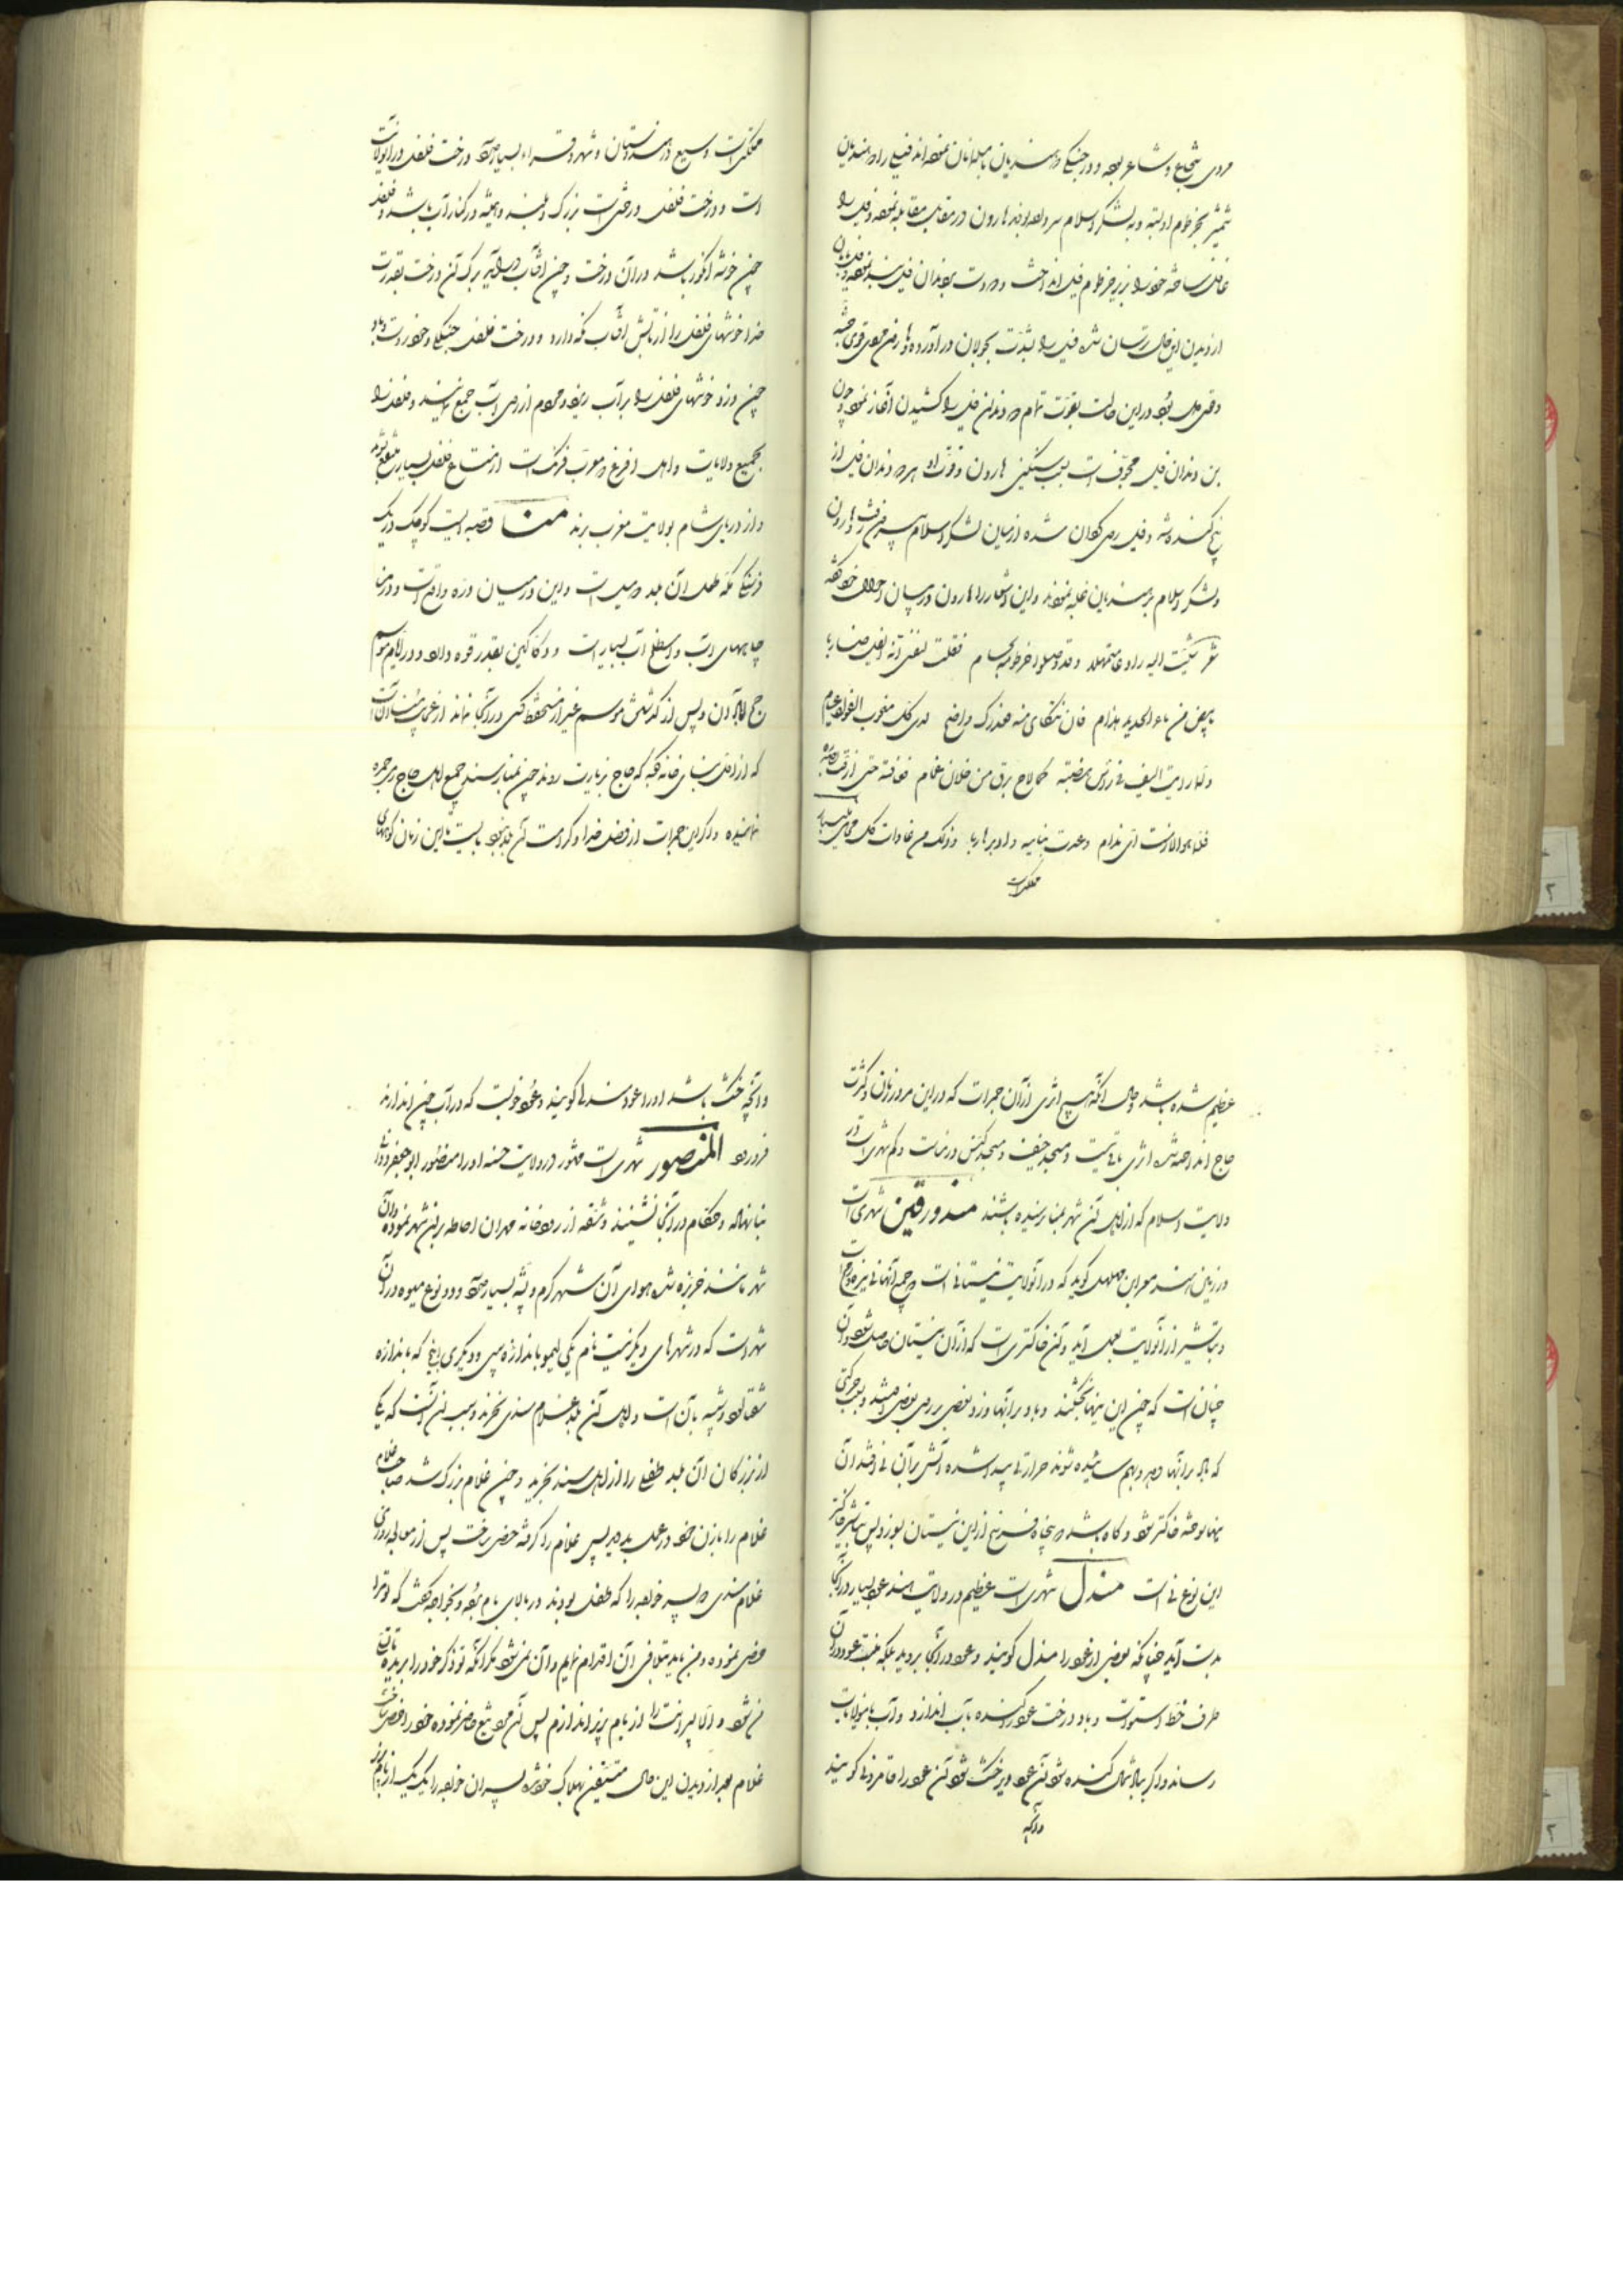 مردی شجاع و شاعر بوده و در جنگی که هندیان با مسلمانان نموده‌اند فیلی را هندیان
شمشیر بخرطوم او بسته و به لشکر اسلام سر داده بودند هارون در مقابل مقابله نموده و فیل را
غافل ساخته خود را بزیر خرطوم فیل انداخت و دو دست بدندان فیل بند نموده
از دیدن این حال ترسان شده فیل را بشدت بجولان در آورده و هارون مردی قوی جثه
و قوی دل بود در این حالت بقوت تمام دو دندان فیل را کشیدن آغاز نمود و چون
بن دندان فیل مجوف است بسبب سنگینی هارون و قوت او هر دو دندان فیل از
بیخ کنده شد و فیل روی گردان شده از میان لشکر اسلام بیرون رفت و هارون
و لشکر اسلام بر هندیان غلبه نمودند و این اشعار را هارون در بیان احوال خود گفته
شعر مشیت الیه رادعا متمهلا و قد وصلوا خرطومه بحسام فقلت لنفسی انه الفیل ضاربا
بابیض من ماء الحدید هذام فان تنکای منه فعذرک واضح لدی کل منخوب الفؤاد عبام
و لما رایت السیف فی راس هضبة کما لاح برق من خلال غمام فعافسته حتی
و عدت بنابیه و ادبر هاربا و ذلک من عادات کل محامی ملیبار
مملکتی است
مملکتی است وسیع در هندوستان و شهر و قراء بسیار دارد درخت فلفل در آنولایت
است و درخت فلفل درختی است بزرگ و بلند و همیشه در کنار آب باشد و فلفل
چون خوشه انگور باشد در آن درخت و چون آفتاب برآید برگ آن درخت بقدرت
خدا خوشهای فلفل را از تابش آفتاب نگه دارد و درخت فلفل جنگلی و خودرو است و باد
چون وزد خوشهای فلفل را بر آب ریزد و مردم از روی آب جمع نمایند و فلفل را
بجمیع ولایات و اهل افرنج که معرب فرنگ است از متاع فلفل بسیار منتفع شوند
و از دریای شام بولایت مغرب برند منا قصبه ایست کوچک در یک
فرسنگی مکه طول آن بلد دو میل است و این در میان دره واقع است و در منا
چاههای آب و اصطلخ آب بسیار است و دکاکین بقدر قوه دارد و در ایام موسم
حج آبادان و پس از گذشتن موسم غیر از مستحفظ کسی در آنجا نماند از عجایب منا آن است
که از اول بنای خانه کعبه که حاج بزیارت روند چون بمنا رسند جمیع اهل حاج رمی جمره
نمایند و اگر این جمرات از فضل خدا و کرامت آن بلد نبود بایست تا این زمان کوههای
عظیم شده باشد و حال آنکه هیچ اثری از آن جمرات که در این مرور زمان و کثرت
حاج انداخته شده اثری باقی نیست و مسجد خیف و مسجد کبش در منا است و کم شهری است در
ولایت اسلام که از اهل آن شهر بمنا نرسیده باشند مندورقین شهری است
در زمین هند مسعر ابن مهلهل گوید که در آنولایت نیستانی است
و تباشیر از آنولایت بعمل آید و آن خاکستری است که از آن نیستان حاصل شود و آن
چنان است که چون این نیها خشکند و باد بر آنها وزد بعضی بر روی بعضی افتند و بسبب حرکتی
که باد بر آنها دهد و بهم سائیده شوند حرارتی پیدا شده آتش بر آن نی افتد آن
نیها سوخته خاکستر شود و گاه باشد که پنجاه فرسخ از این نیستان بسوزد پس تباشیر خاکستر
این نوع نی است مندل شهری است عظیم در ولایت هند عود بسیار در آنجا
بدست آید چنانکه بعضی از عود را مندل گویند و عود در آنجا نروید بلکه منبت عود در آن
طرف خط استوا است و باد درخت عود را کنده بآب اندازد و آب باینولایات
رساند و اگر بباد شمال کنده شود آن عود و تر خشک شود آن عود را قامرونی گویند
و آنچه
و آنچه خشک باشد او را عود مندلی گویند و عود خوب است که در آب چون اندازند
فرو رود المنصور شهری است مشهور در ولایت سند او را منصور ابو جعفر دوانقی
بنا نهاده و حکام در آنجا نشینند و شقه از رودخانه مهران احاطه بر این شهر نموده و آن
شهر مانند جزیره شده هوای آن شهر گرم و پشه بسیار دارد و دو نوع میوه در آن
شهر است که در شهرهای دیگر نیست نام یکی لیمو باندازه سیبی و دیگری انبج که باندازه
شفتالو و شبیه بآن است و اهل آن بلد غلام سندی نخرند و سبب این آنست که یکی
از بزرگان آن بلد طفلی را از اهل سند بخرید و چون غلام بزرگ شد صاحب غلام
غلام را با زن خود در عمل بد دید پس غلام را گرفته خصی ساخت پس از معالجه روزی
غلام سندی دو پسر خواجه را که طفل بودند در بالای بام برد و بخواجه گفت که تو مرا
خصی نموده و من باید بتلافی آن اقدام نمایم و آن نمی‌شود مگر آنکه تو ذکر خود را بریده
و الا پسرانت را از بام بزیر اندازم پس آن مرد تیغ حاضر نموده خود را خصی ساخت
غلام بعد از دیدن این حال متیقن بهلاک خود شده پسران خواجه را یک یک از بام بزیر